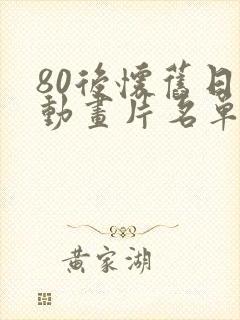 80後懷舊日
動畫片名單
黃家湖